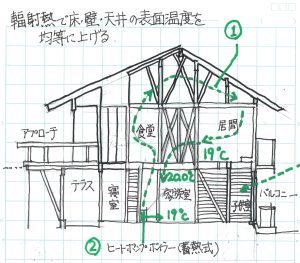 輻射熱で床・壁・天井の表面温度を
均等に上げる。
①
アプローチ
食堂
居間
19℃
テラス
寝室
22.0℃
家族室
19℃
子供室
バルコニー
② ヒートポンプ・ボイラー(蓄熱式)